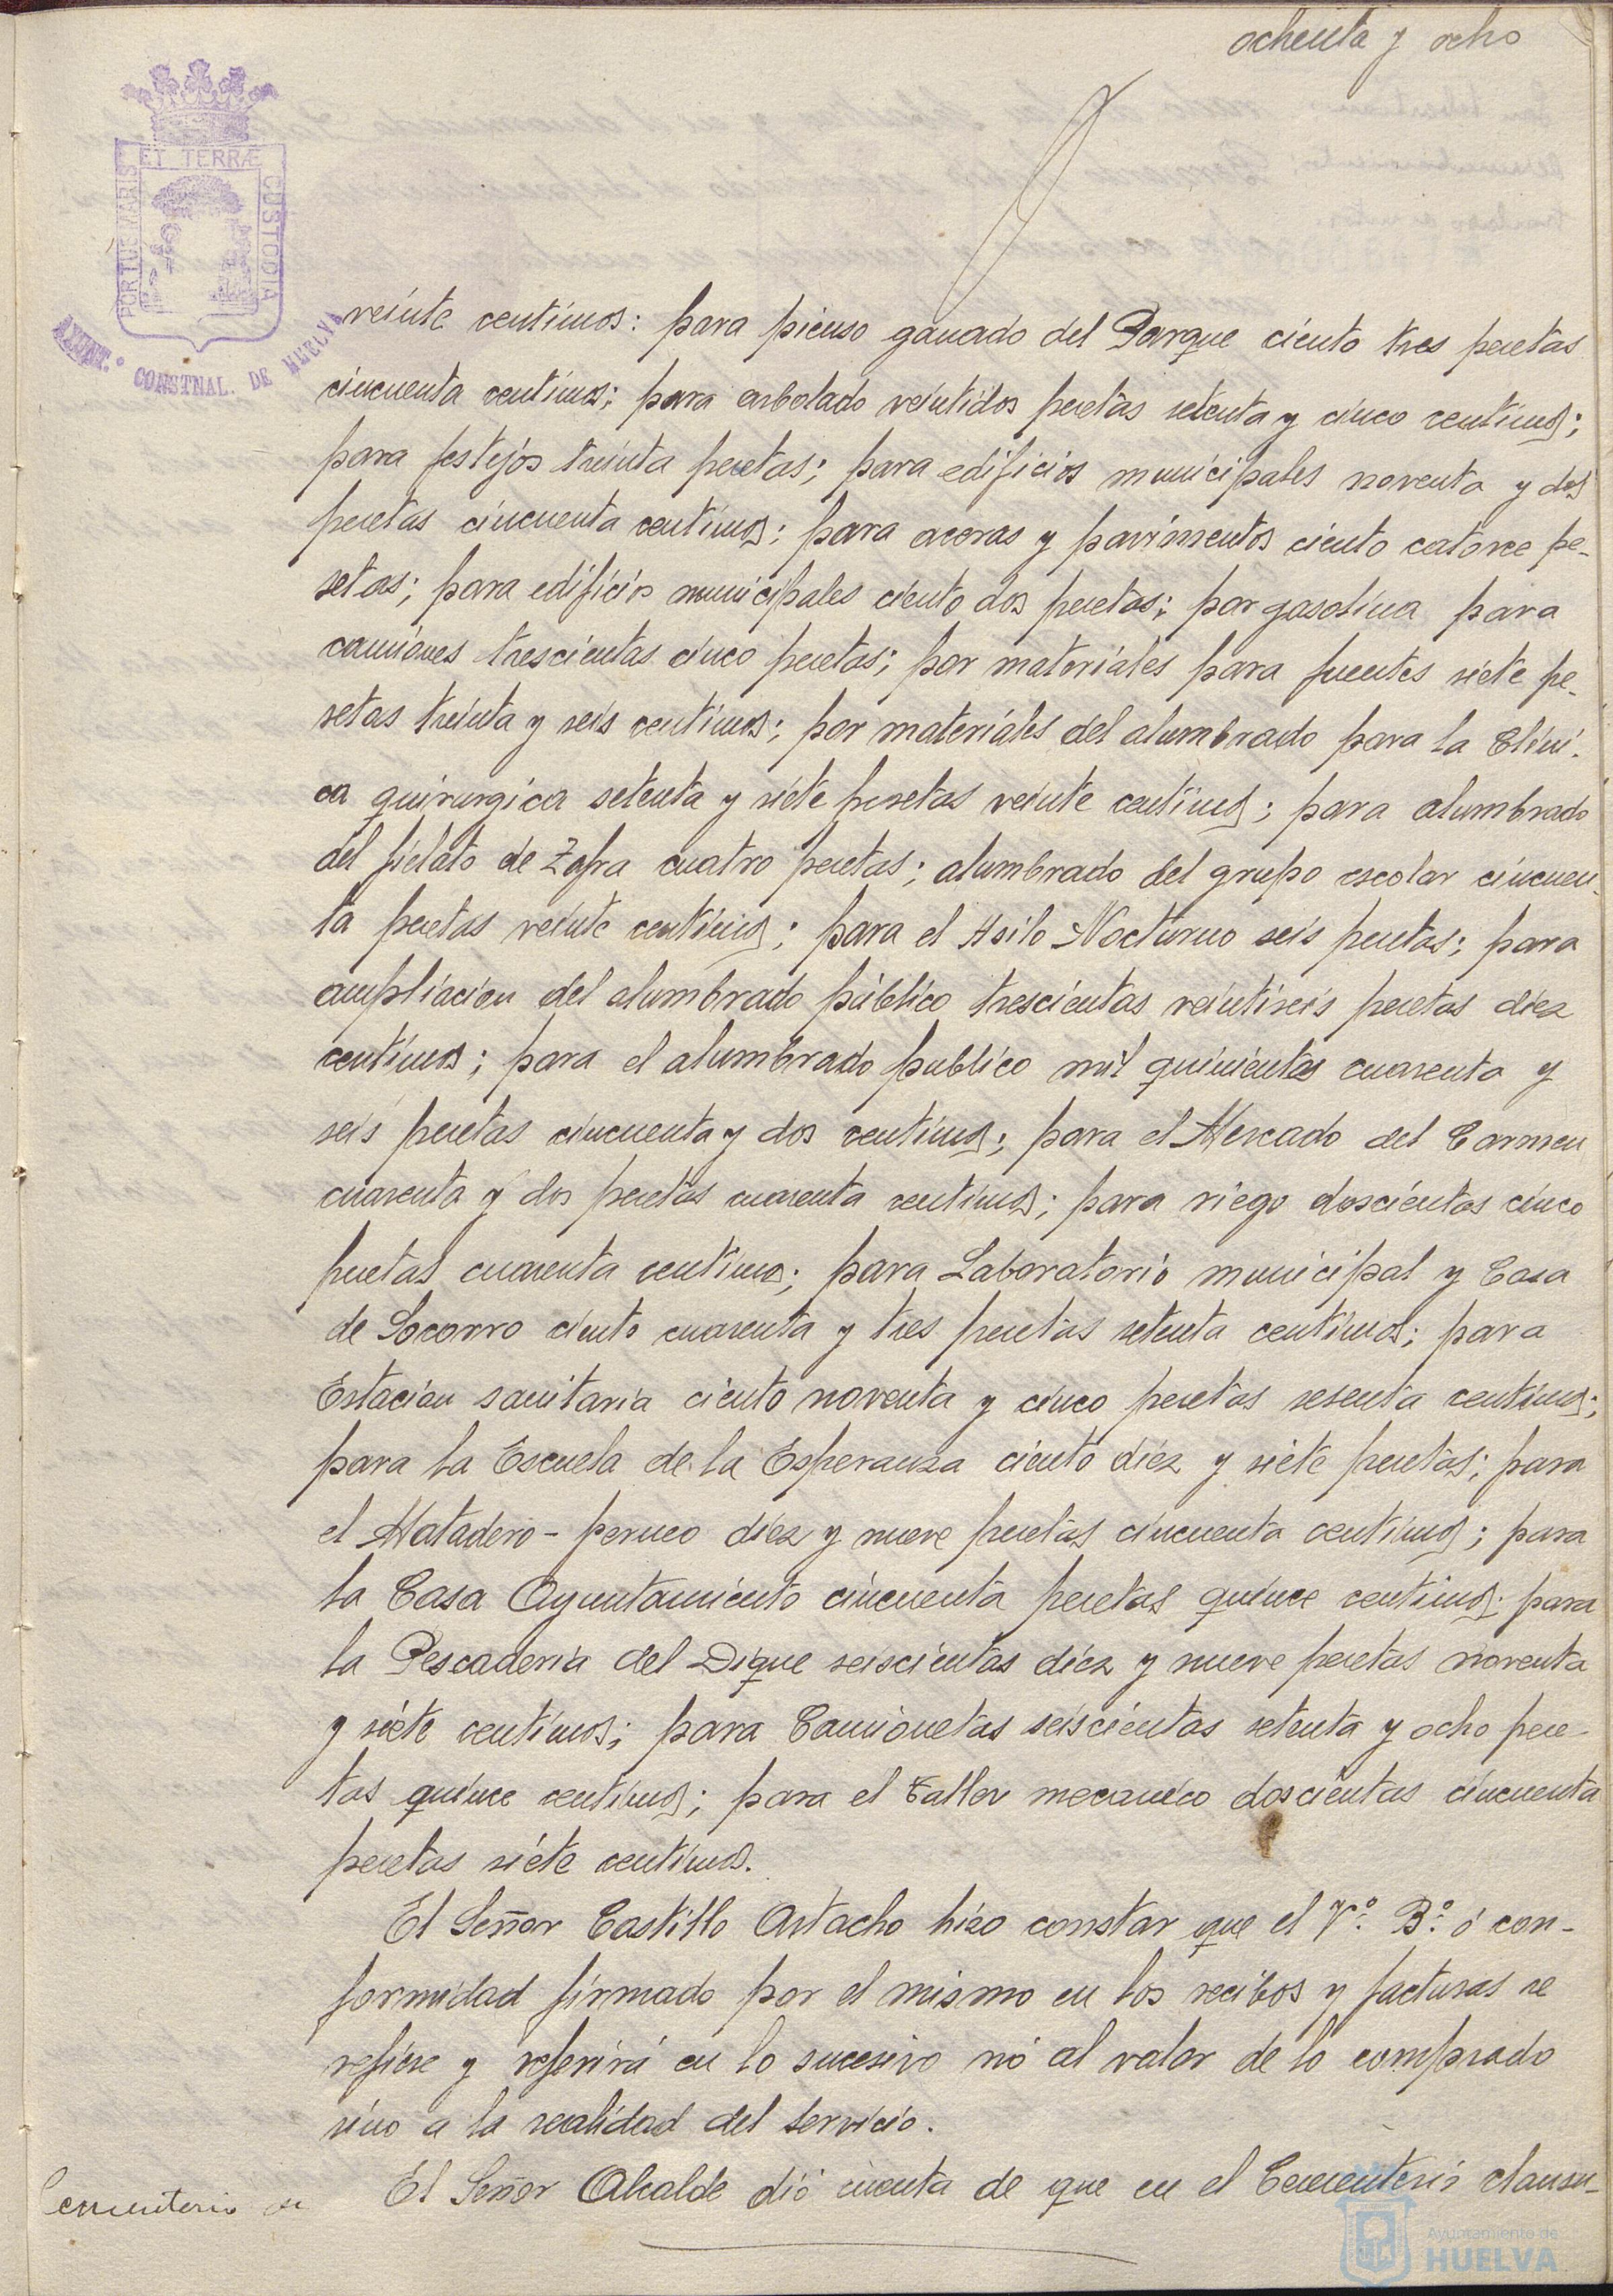 ochenta y ocho
ET TERRÆ
PORTUS MARIS
CUSTODIA
AYUNT.º CONSTNAL. DE HUELVA
veinte centimos: para pienso ganado del Parque ciento tres pesetas
cincuenta centimos; para arbolado veintidos pesetas setenta y cinco centimos;
para festejos treinta pesetas; para edificios municipales noventa y dos
pesetas cincuenta centimos; para aceras y pavimentos ciento catorce pe-
setas; para edificios municipales ciento dos pesetas; por gasolina para
camiones trescientas cinco pesetas; por materiales para fuentes siete pe-
setas treinta y seis centimos; por materiales del alumbrado para la Clini-
ca quirurgica setenta y siete pesetas veinte centimos; para alumbrado
del fielato de Zafra cuatro pesetas; alumbrado del grupo escolar cincuen-
ta pesetas veinte centimos; para el Asilo Nocturno seis pesetas; para
ampliacion del alumbrado público trescientas veintiseis pesetas diez
centimos; para el alumbrado publico mil quinientas cuarenta y
seis pesetas cincuenta y dos centimos; para el Mercado del Carmen
cuarenta y dos pesetas cuarenta centimos; para riego doscientas cinco
pesetas cuarenta centimos; para Laboratorio municipal y Casa
de Socorro ciento cuarenta y tres pesetas setenta centimos; para
Estacion sanitaria ciento noventa y cinco pesetas sesenta centimos;
para la Escuela de la Esperanza ciento diez y siete pesetas; para
el Matadero - perneo diez y nueve pesetas cincuenta centimos; para
la Casa Ayuntamiento cincuenta pesetas quince centimos; para
la Pescaderia del Dique seiscientas diez y nueve pesetas noventa
y siete centimos; para Camionetas seiscientas setenta y ocho pese-
tas quince centimos; para el Taller mecanico doscientas cincuenta
pesetas siete centimos.
El Señor Castillo Astacho hizo constar que el Vº Bº ó con-
formidad firmado por el mismo en los recibos y facturas se
refiere y referirá en lo sucesivo nó al valor de lo comprado
sino a la realidad del servicio.
Cementerio de El Señor Alcalde dió cuenta de que en el Cementerio clausu-
Ayuntamiento de
HUELVA